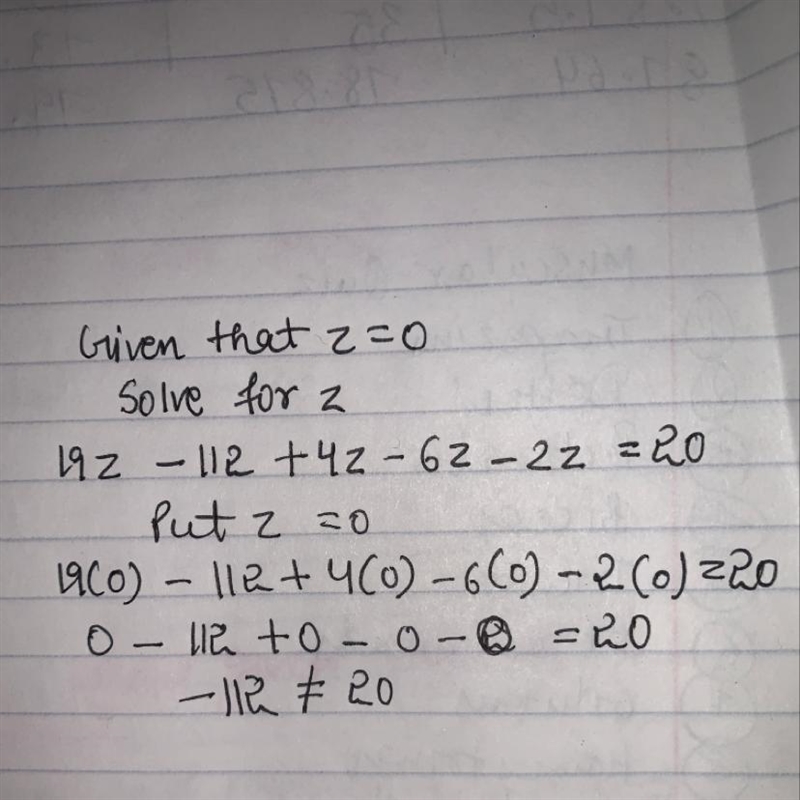 Given that z = 0
Solve for z
19z - 112 + 4z - 6z - 2z = 20
Put z = 0
19(0) - 112 + 4(0) - 6(0) - 2(0) = 20
0 - 112 + 0 - 0 - 0 = 20
-112 ≠ 20